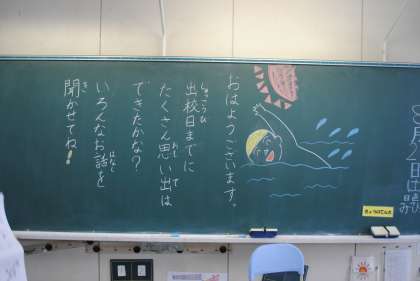 8月2日(
おはようございます。
出校日までに
しゅっこうび
たくさん思い出は
おも で
できたかな?
いろんなお話を
はなし
聞かせてね!
き